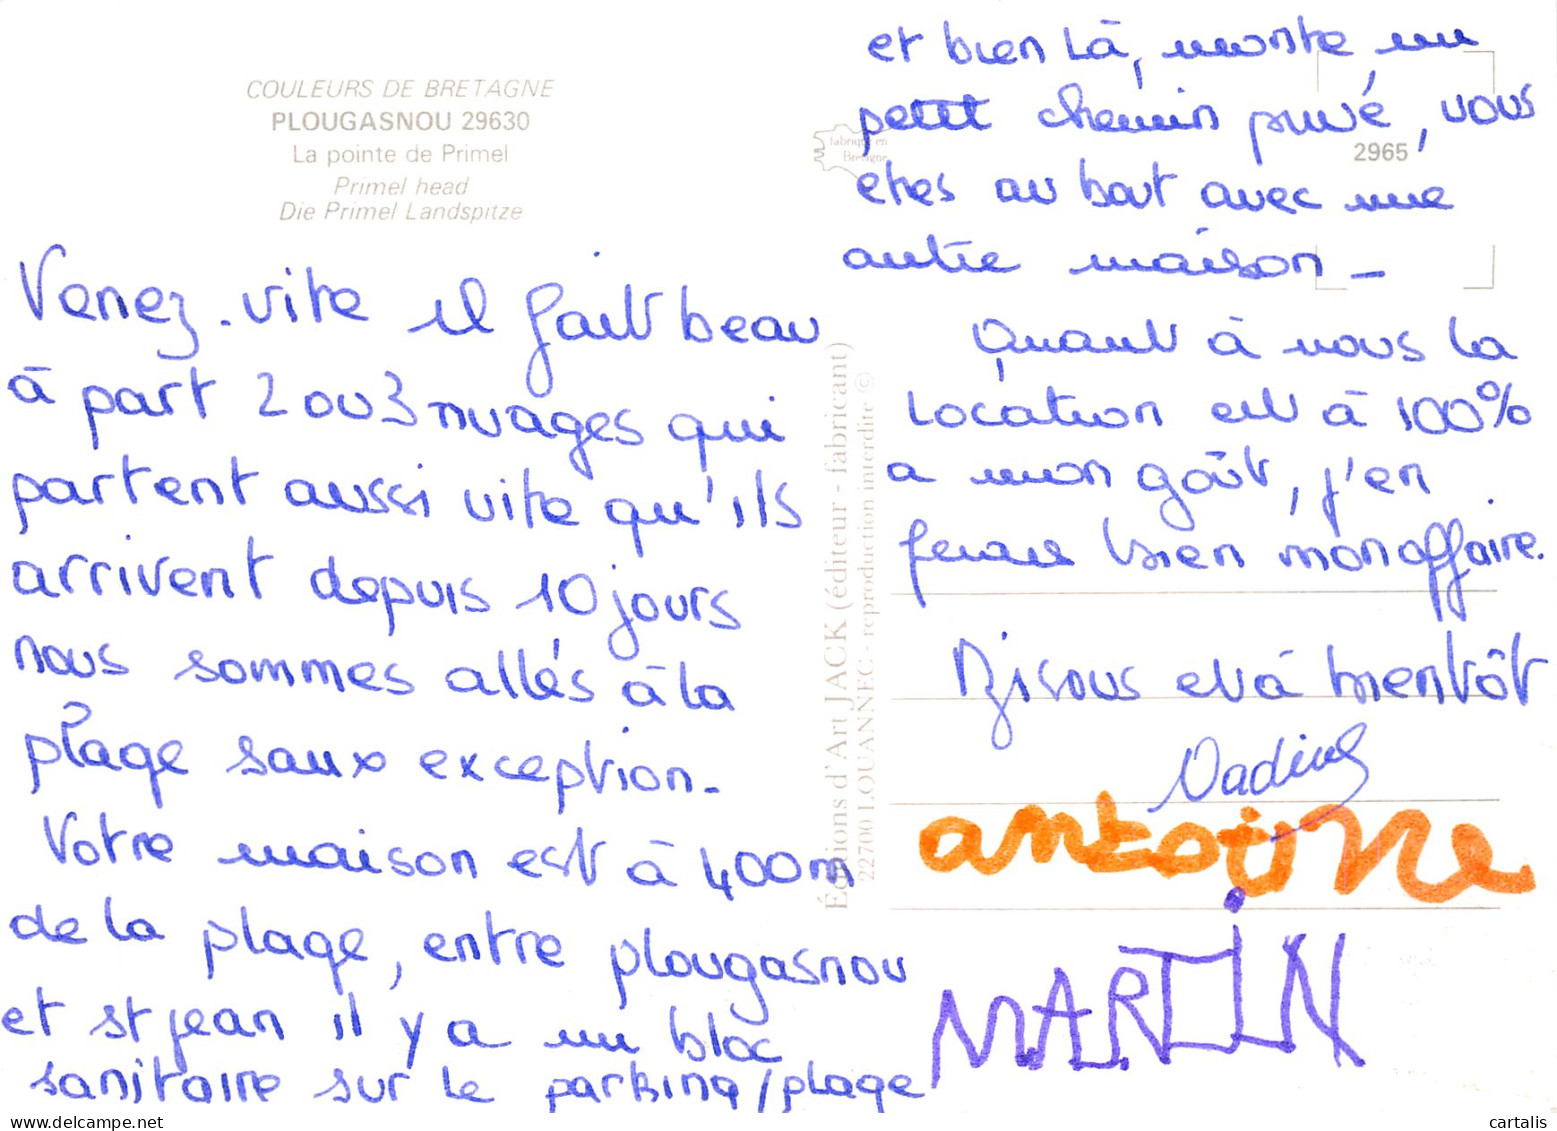 COULEURS DE BRETAGNE
PLOUGASNOU 29630
La pointe de Primel
Primel head
Die Primel Landspitze
Venez-vite il fait beau
à part 2 ou 3 nuages qui
partent aussi vite qu'ils
arrivent depuis 10 jours
nous sommes allés à la
plage saux exception_
Votre maison est à 400m
de la plage, entre plougasnou
et st jean il y a un bloc
sanitaire sur le parking/plage
Éditions d'Art JACK (éditeur - fabricant)
22700 LOUANNEC - reproduction interdite ©
fabriqué en
Bretagne
2965
et bien là, monte un
petit chemin privé, vous
etes au bout avec une
autre maison_
Quant à nous la
location est à 100%
a mon goût, j'en
ferais bien mon affaire.
Bisous et à bientôt
Nadine
antoine
MARTiN
www.delcampe.net
cartalis